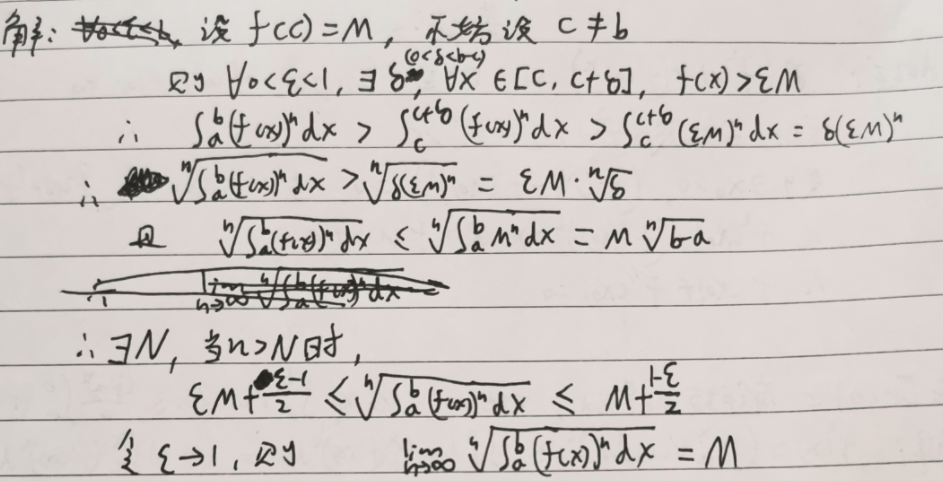 解: 设 f(c)=M, 不妨设 c≠b
则 ∀0<ε<1, ∃δ (0<δ<b-c), ∀x∈[c, c+δ], f(x)>εM
∴ ∫_a^b (f(x))^n dx > ∫_c^{c+δ} (f(x))^n dx > ∫_c^{c+δ} (εM)^n dx = δ(εM)^n
∴ ⁿ√(∫_a^b (f(x))^n dx) > ⁿ√(δ(εM)^n) = εM·ⁿ√δ
且 ⁿ√(∫_a^b (f(x))^n dx) ≤ ⁿ√(∫_a^b M^n dx) = M ⁿ√(b-a)
∴ ∃N, 当n>N时,
εM+(ε-1)/2 ≤ ⁿ√(∫_a^b (f(x))^n dx) ≤ M+(1-ε)/2
令 ε→1, 则 lim_{n→∞} ⁿ√(∫_a^b (f(x))^n dx) = M